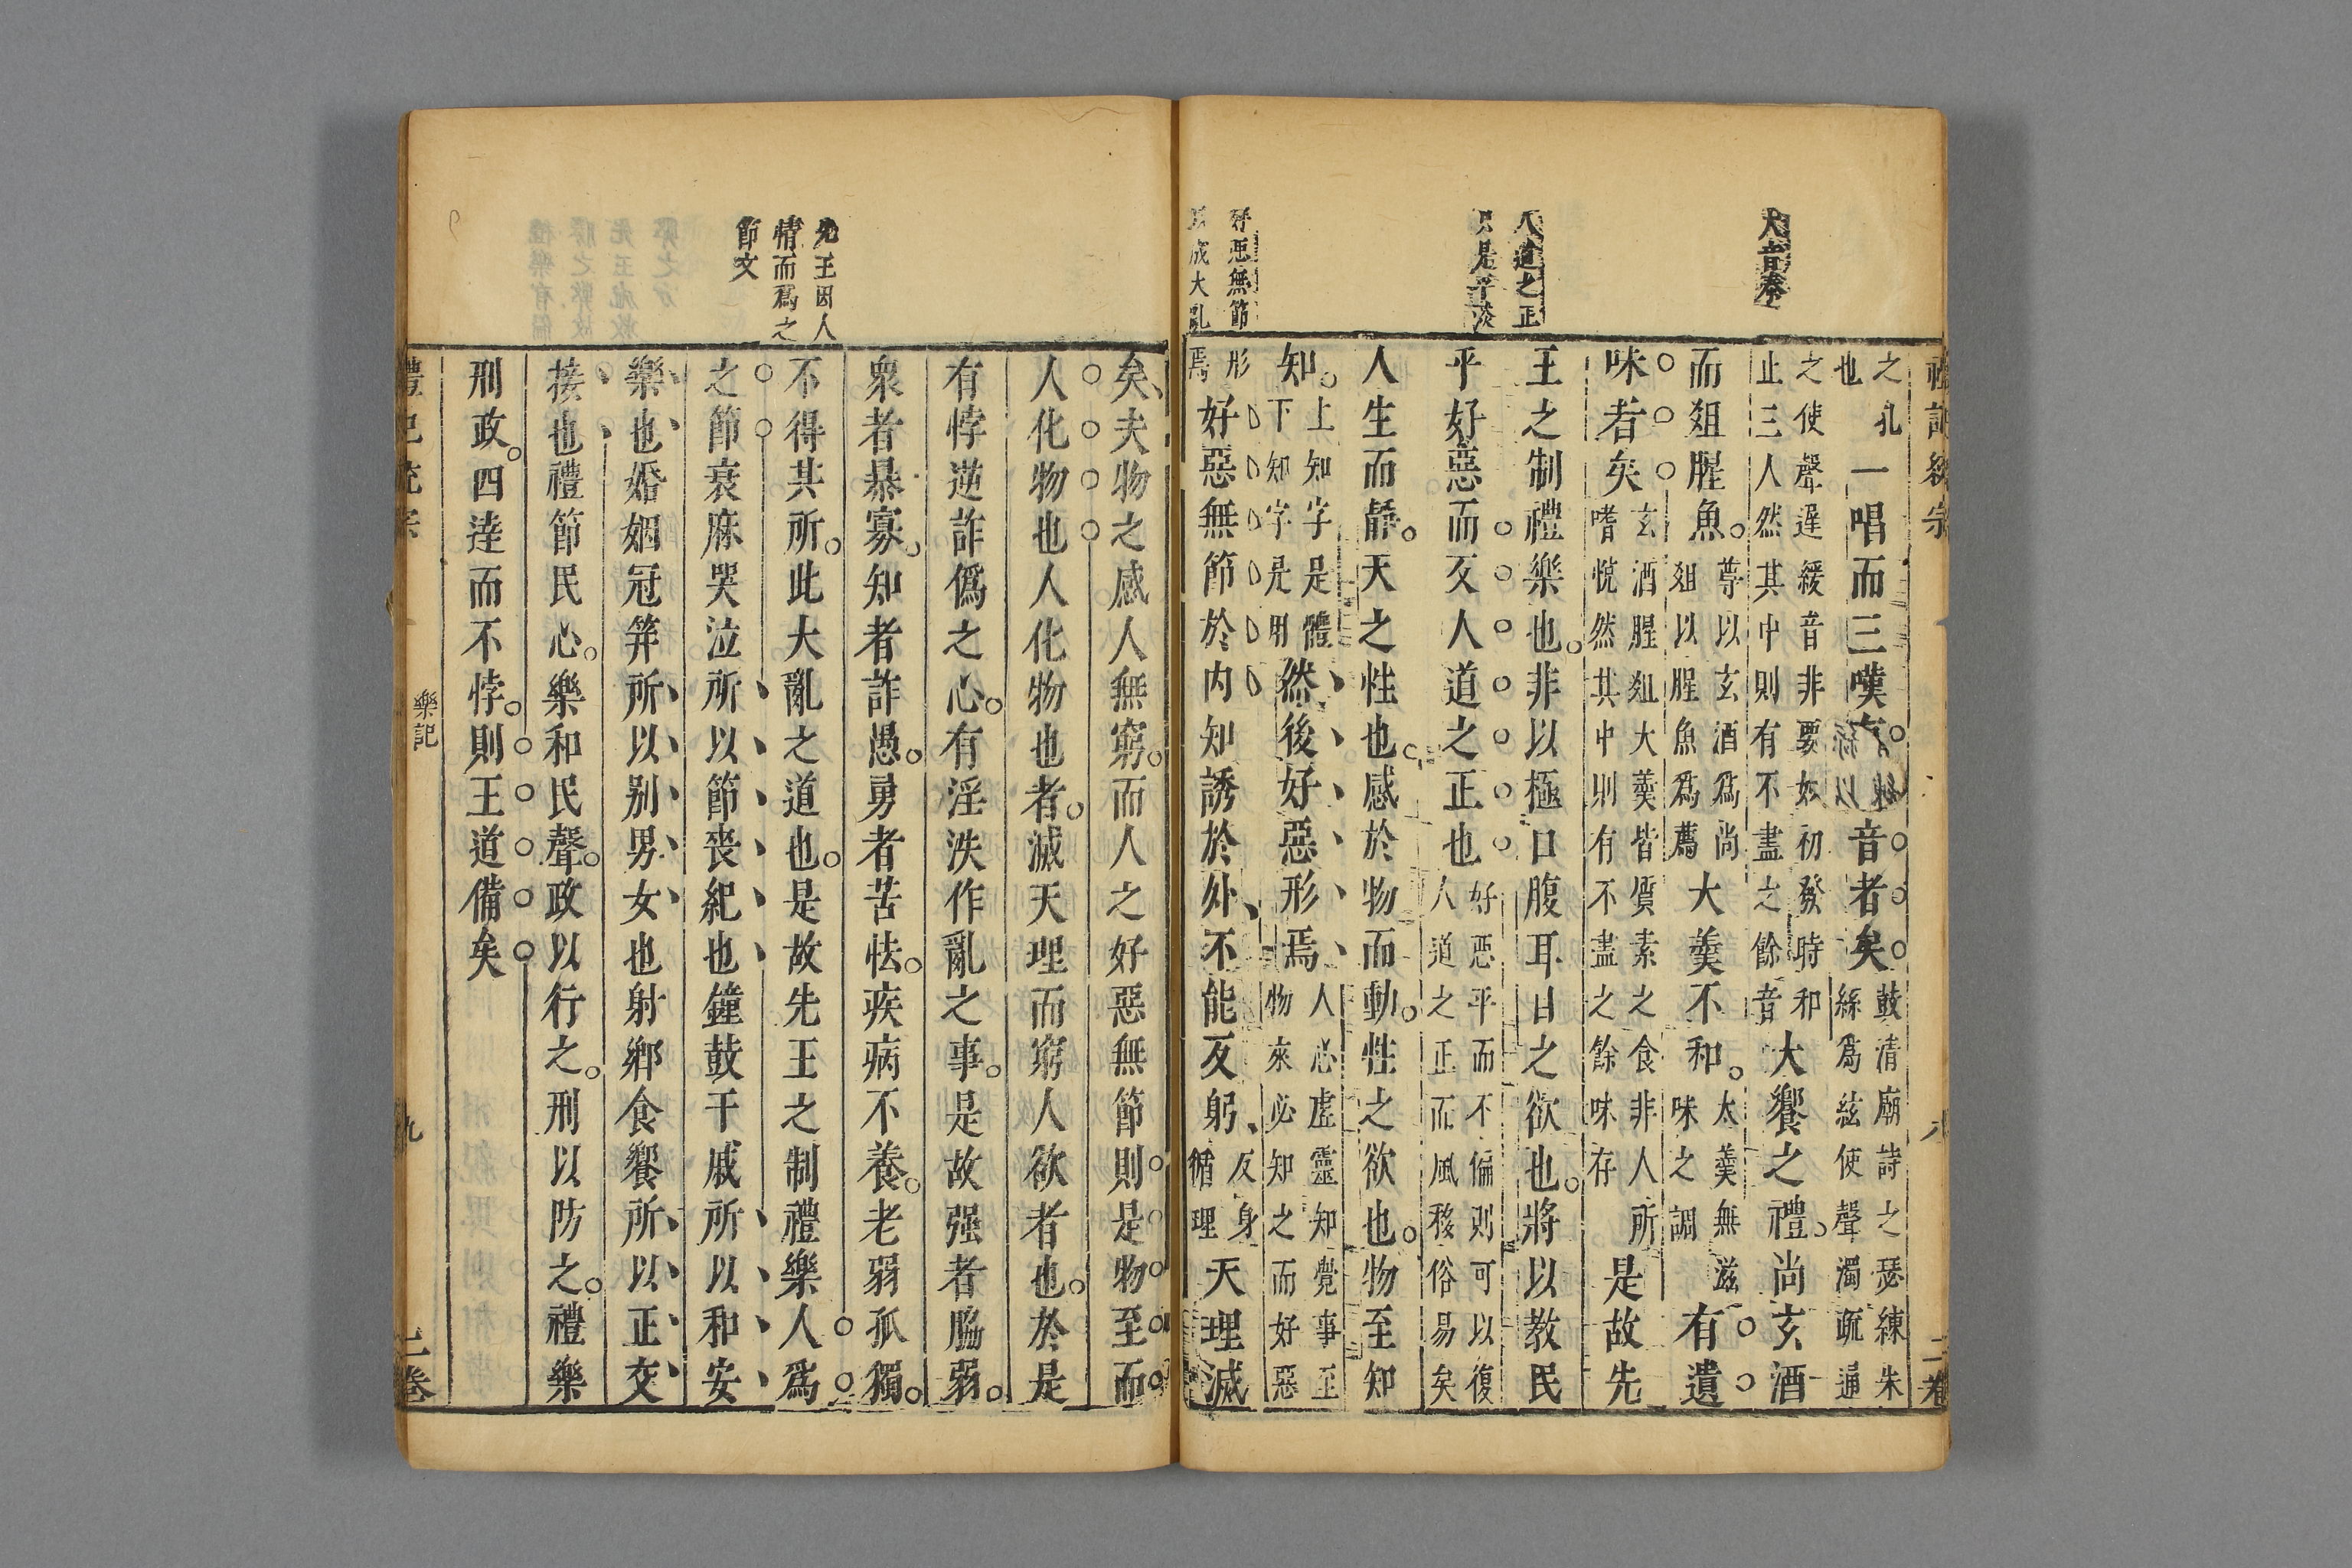 大音奏
人道之正
只是平淡
好惡無節
以成大亂
之孔
也
一唱而三嘆。音。者。矣。
鼓清廟詩之瑟練朱
絲爲絃使聲濁疏通
之使聲遲緩音非要妙初發時和
止三人然其中則有不盡之餘音
大饗之禮。尚玄酒
而俎腥魚。
尊以玄酒爲尚
俎以腥魚爲薦
大羹不和。
太羹無滋
味之調
有遺
味者矣
玄酒腥俎大羹皆質素之食非人所
嗜悅然其中則有不盡之餘味存
是故先
王之制禮樂也。非以極口腹耳目之欲也。將以教民
平好惡而反人道之正也
好惡平而不偏則可以復
人道之正而風移俗易矣
人生而靜。天之性也。感於物而動。性之欲也。物至知
知。
上知字是體
下知字是用
然後好惡形焉
人心虛靈知覺事至
物來必知之而好惡
形
焉
好惡無節於内知誘於外、不能反躬、
反身
循理
天理滅
二卷
先王因人
情而爲之
節文
矣、夫物之感人無窮。而人之好惡無節則是物至而
人化物也人化物也者。滅天理而窮人欲者也。於是
有悖逆詐僞之心。有淫泆作亂之事。是故强者脇弱。
衆者暴寡。知者詐愚。勇者苦怯。疾病不養。老弱孤獨。
不得其所。此大亂之道也。是故先王之制禮樂人爲
之節衰麻哭泣所以節喪紀也鐘鼓干戚所以和安
樂也婚姻冠笄所以别男女也射鄉食饗所以正交
接也禮節民心。樂和民聲。政以行之。刑以防之。禮樂
刑政。四達而不悖。則王道備矣
禮記統宗
樂記
九
二卷